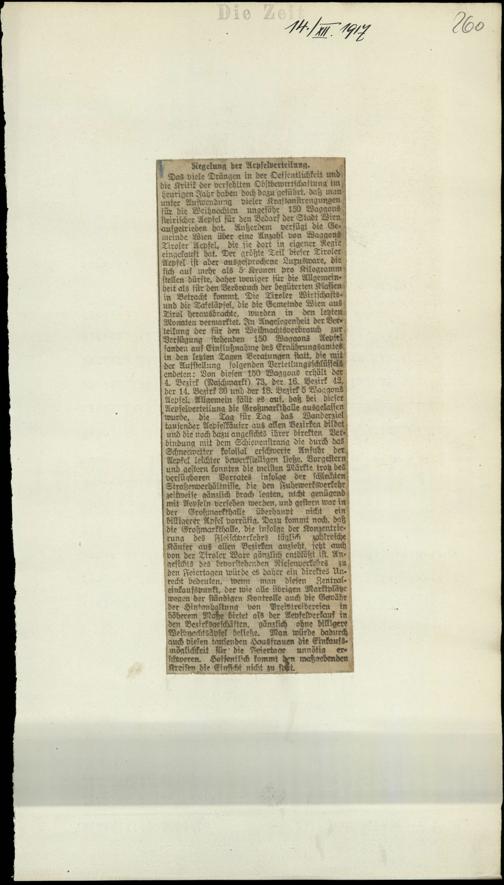 Die Zeit
14./XII. 1917
260
Regelung der Aepfelverteilung.
Das viele Drängen in der Oeffentlichkeit und
die Kritik der verfehlten Obstbewirtschaftung im
heurigen Jahr haben doch dazu geführt, daß man
unter Aufwendung vieler Kraftanstrengungen
für die Weihnachten ungefähr 150 Waggons
steirischer Aepfel für den Bedarf der Stadt Wien
aufgetrieben hat. Außerdem verfügt die Ge-
meinde Wien über eine Anzahl von Waggons
Tiroler Aepfel, die sie dort in eigener Regie
eingekauft hat. Der größte Teil dieser Tiroler
Aepfel ist aber ausgesprochene Luxusware, die
sich auf mehr als 5 Kronen pro Kilogramm
stellen dürfte, daher weniger für die Allgemein-
heit als für den Verbrauch der begüterten Klassen
in Betracht kommt. Die Tiroler Wirtschafts-
und die Tafeläpfel, die die Gemeinde Wien aus
Tirol herausbrachte, wurden in den letzten
Monaten vermarktet. In Angelegenheit der Ver-
teilung der für den Weihnachtsverbrauch zur
Verfügung stehenden 150 Waggons Aepfel
fanden auf Einflußnahme des Ernährungsamtes
in den letzten Tagen Beratungen statt, die mit
der Aufstellung folgenden Verteilungsschlüssels
endeten: Von diesen 150 Waggons erhält der
4. Bezirk (Naschmarkt) 73, der 16. Bezirk 42,
der 14. Bezirk 30 und der 18. Bezirk 5 Waggons
Aepfel. Allgemein fällt es auf, daß bei dieser
Aepfelverteilung die Großmarkthalle ausgelassen
wurde, die Tag für Tag das Wanderziel
tausender Aepfelkäufer aus allen Bezirken bildet
und die noch dazu angesichts ihrer direkten Ver-
bindung mit dem Schienenstrang die durch das
Schneewetter kolossal erschwerte Anfuhr der
Aepfel leichter bewerkstelligen ließe. Vorgestern
und gestern konnten die meisten Märkte trotz des
verfügbaren Vorrates infolge der schlechten
Straßenverhältnisse, die den Fuhrwerksverkehr
zeitweise gänzlich brach legten, nicht genügend
mit Aepfeln versehen werden, und gestern war in
der Großmarkthalle überhaupt nicht ein
billigerer Apfel vorrätig. Dazu kommt noch, daß
die Großmarkthalle, die infolge der Konzentrie-
rung des Fleischverkehrs täglich zahlreiche
Käufer aus allen Bezirken anzieht, jetzt auch
von der Tiroler Ware gänzlich entblößt ist. An-
gesichts des bevorstehenden Riesenverkehrs zu
den Feiertagen würde es daher ein direktes Un-
recht bedeuten, wenn man diesen Zentral-
einkaufspunkt, der wie alle übrigen Marktplätze
wegen der ständigen Kontrolle auch die Gewähr
der Hintanhaltung von Preistreibereien in
höherem Maße bietet als der Aepfelverkauf in
den Bezirksgeschäften, gänzlich ohne billigere
Weihnachtsäpfel beließe. Man würde dadurch
auch vielen tausenden Hausfrauen die Einkaufs-
möglichkeit für die Feiertage unnötig er-
schweren. Hoffentlich kommt den maßgebenden
Kreisen die Einsicht nicht zu spät.